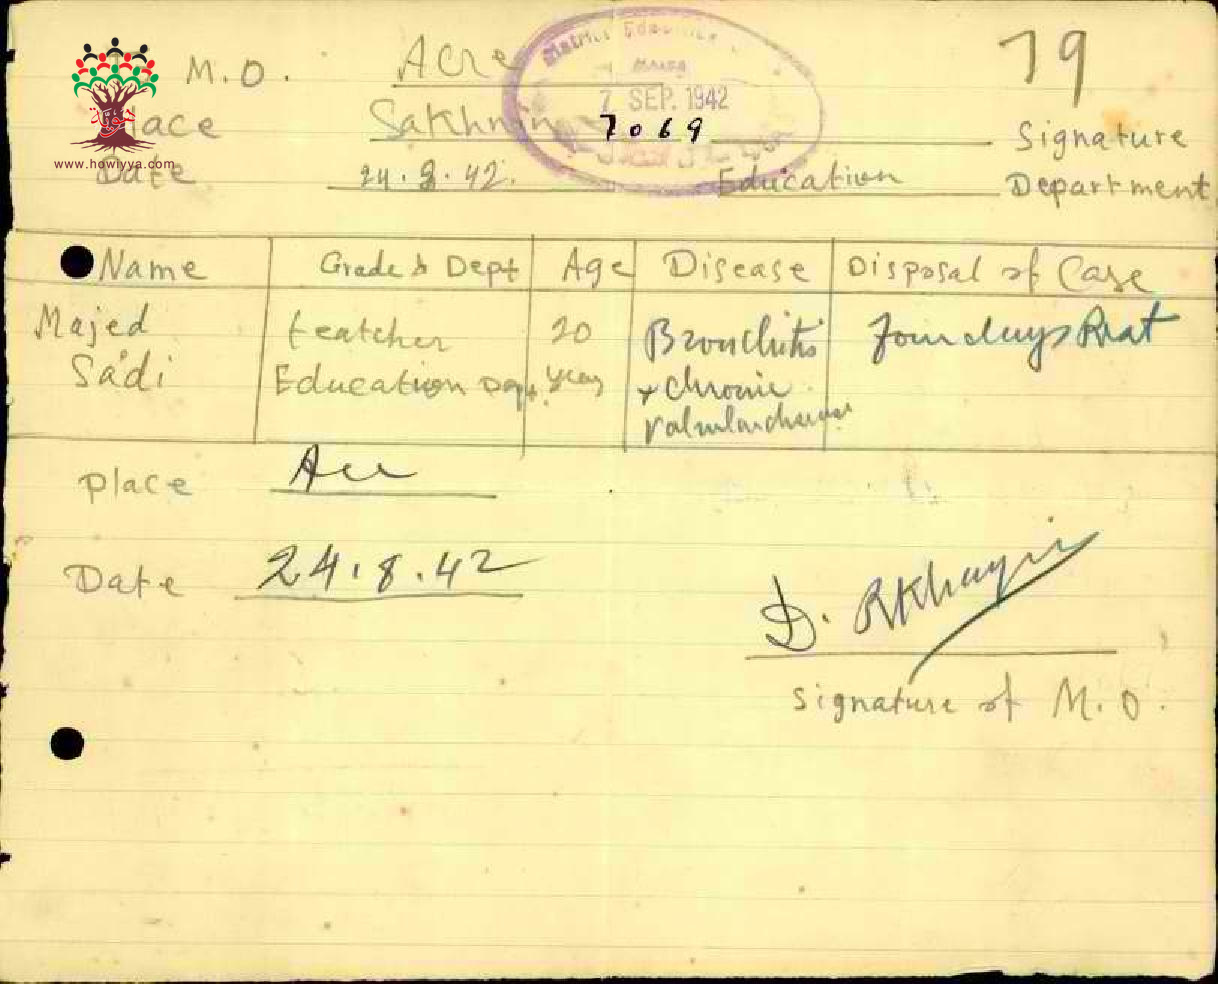 M.O. Acre 79
Place Sakhnin Signature
7 SEP. 1942
7069
Date 24.8.42. Education Department
www.howiyya.com
District Education
Name Grade & Dept Age Disease Disposal of Case
Majed teatcher 20 Bronchitis Four days Rest
Sa'di Education Dept. year + chronic
valvular
place Acre
Date 24.8.42
D. RKhayri
Signature of M.O.